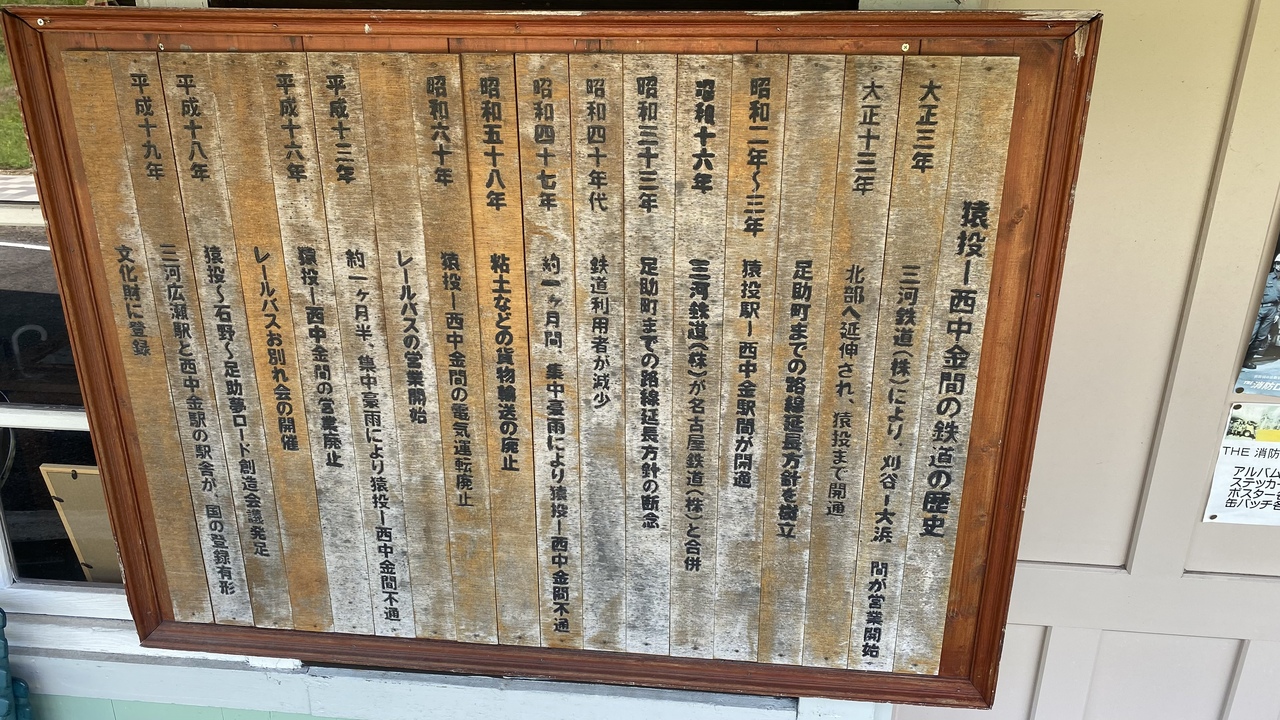 猿投ー西中金間の鉄道の歴史
大正三年 三河鉄道(株)により、刈谷ー大浜 間が営業開始
大正十三年 北部へ延伸され、猿投まで開通
足助町までの路線延長方針を樹立
昭和二年〜三年 猿投駅ー西中金駅間が開通
昭和十六年 三河鉄道(株)が名古屋鉄道(株)と合併
昭和三十三年 足助町までの路線延長方針の断念
昭和四十年代 鉄道利用者が減少
昭和四十七年 約一ヶ月間、集中豪雨により猿投ー西中金間不通
昭和五十八年 粘土などの貨物輸送の廃止
昭和六十年 猿投ー西中金間の電気運転廃止
レールバスの営業開始
平成十二年 約一ヶ月半、集中豪雨により猿投ー西中金間不通
平成十六年 猿投ー西中金間の営業廃止
レールバスお別れ会の開催
平成十八年 猿投〜石野〜足助夢ロード創造会議発足
平成十九年 三河広瀬駅と西中金駅の駅舎が、国の登録有形
文化財に登録
THE 消防
アルバム
ステッカー
ポスター
缶バッチ